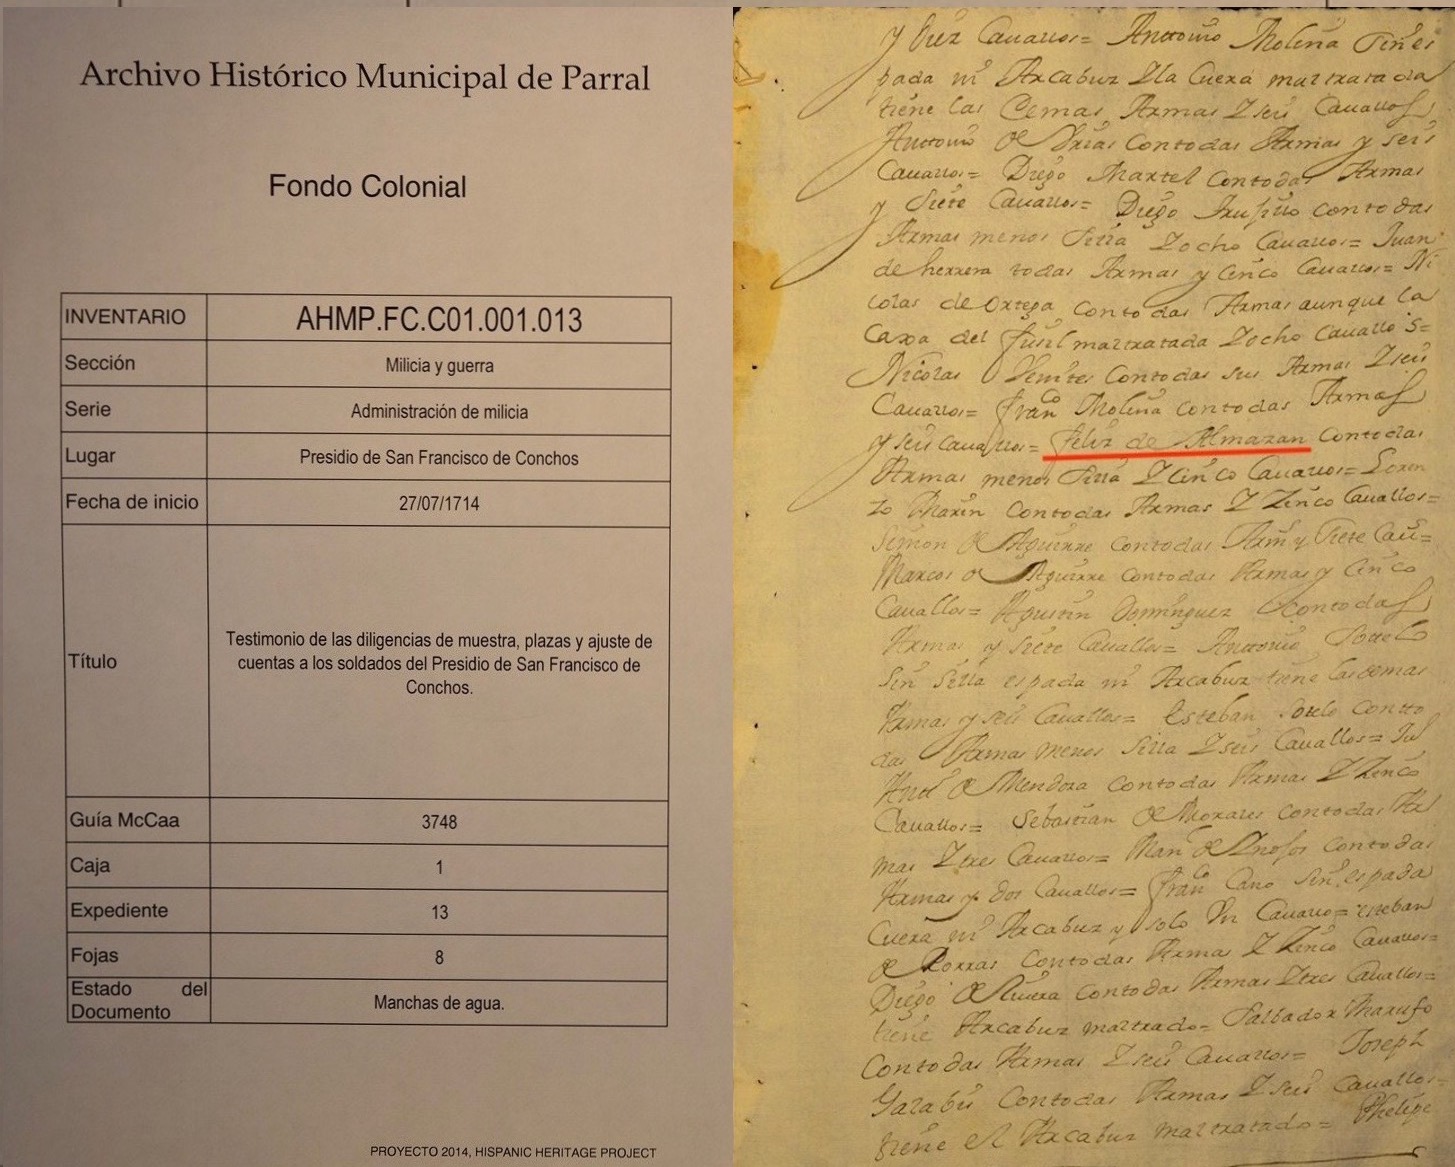 Archivo Histórico Municipal de Parral
Fondo Colonial
INVENTARIO AHMP.FC.C01.001.013
Sección Milicia y guerra
Serie Administración de milicia
Lugar Presidio de San Francisco de Conchos
Fecha de inicio 27/07/1714
Título Testimonio de las diligencias de muestra, plazas y ajuste de
cuentas a los soldados del Presidio de San Francisco de
Conchos.
Guía McCaa 3748
Caja 1
Expediente 13
Fojas 8
Estado del
Documento Manchas de agua.
PROYECTO 2014, HISPANIC HERITAGE PROJECT
y Diez Cauallos= Anttonio Molina sin es
pada ni Arcabuz Y la Cuera maltratada
tiene las Demas Armas Y seis Cauallos
Anttonio de contodas Armas y seis
Cauallos= Diego Martel contodas Armas
y siete Cauallos= Diego Trujillo contodas
Armas menos silla Y ocho Cauallos= Juan
de herrera todas Armas y cinco Cauallos= Ni
colas de Ortega Contodas Armas aunque la
Caxa del fusil maltratada Y ocho Cauallos=
Nicolas Contodas sus Armas Y seis
Cauallos= Franco Molina contodas Armas
y seis cauallos= feliz de Almazan contodas
Armas menos silla Y Cinco Cauallos= Loren
zo Marin Contodas Armas Y Zinco Cauallos=
Simon de Aguirre contodas Arms y siete Cau=
Marcos de Aguirre contodas Armas y Cinco
Cauallos= Agustin Dominguez contodas
Armas y siete Cauallos= Anttonio Sotelo
sin silla espada ni Arcabuz tiene las demas
Armas y seis Cauallos= Esteban Sotelo conto
das Armas menos silla Y seis Cauallos=
de Mendoza contodas Armas Y Zinco
Cauallos= Sebastian de Morales contodas Ar
mas Y tres Cauallos= Manl de contodas
Armas y dos Cauallos= Franco Cano sin espada
Cuera ni Arcabuz y solo Un Cauallo= esteban
de Porras Contodas Armas Y Zinco Cauallos=
Diego de Riuera contodas Armas Y tres Cauallos=
tiene Arcabuz maltrado= Salbador Marufo
Contodas Armas Y seis Cauallos= Joseph
Garabis Contodas Armas Y seis Cauallos=
tiene el Arcabuz maltratado= Phelipe